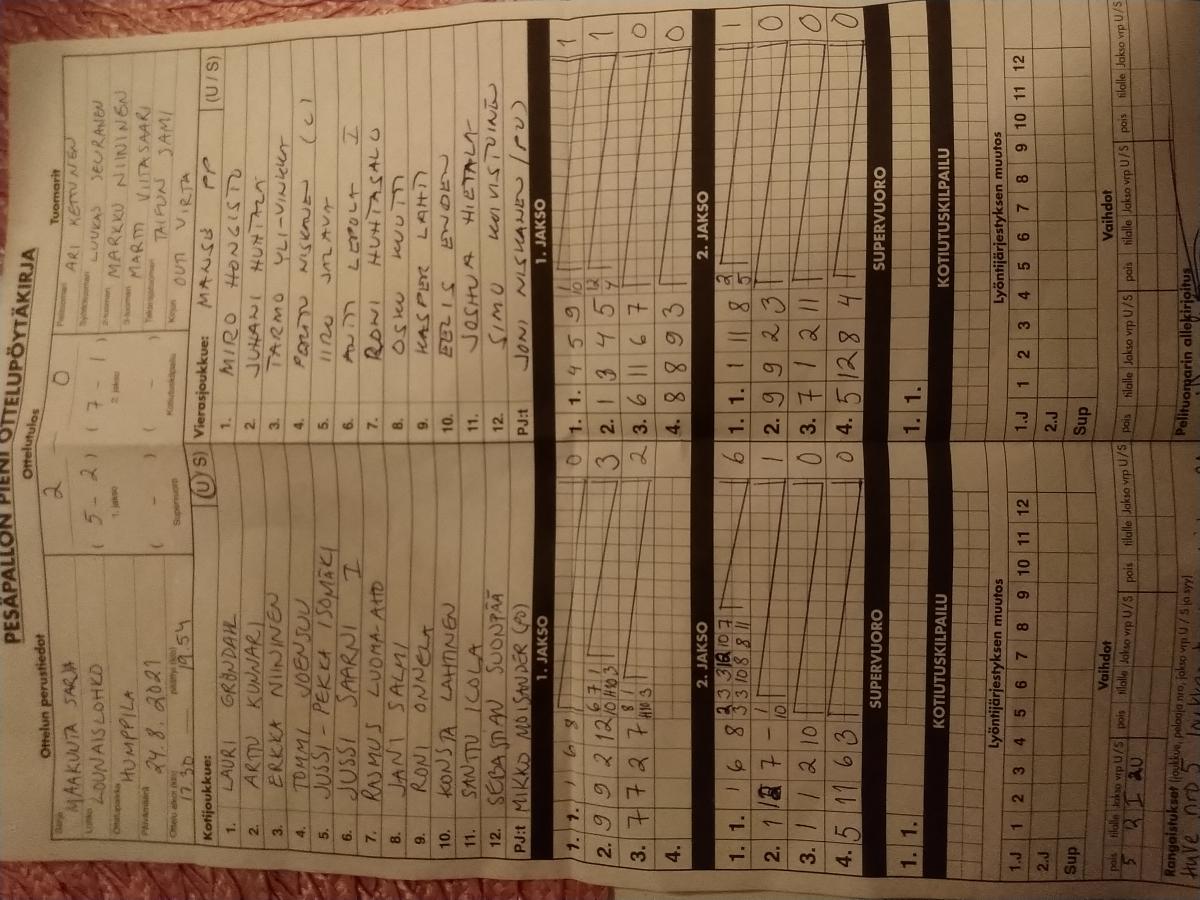 PESÄPALLON PIENI OTTELUPÖYTÄKIRJA
Ottelun perustiedot
Sarja
MAAKUNTA SARJA
Lohko
LOUNAISLOHKO
Ottelupaikka
HUMPPILA
Päivämäärä
24.8.2021
Ottelu alkoi (klo) päättyi (klo)
17.30 19.54
Ottelutulos
2 0
( 5 - 2 ) ( 7 - 1 )
1. jakso 2. jakso
( - ) ( - )
Supervuoro Kotiutuskilpailu
Tuomarit
Pelituomari ARI KETTUNEN
Syöttötuomari LUUKAS SEURANEN
2-tuomari MARKKU NIININEN
3-tuomari MARTTI VIITASAARI
Takarajatuomari TAIFUN SAMI
Kirjuri OUTI VIRTA
Kotijoukkue: (U/S)
1. LAURI GRÖNDAHL
2. ARTTU KUNNARI
3. ERKKA NIININEN
4. TOMMI JOENSUU
5. JUSSI-PEKKA ISOMÄKI
6. JUSSI SAARNI I
7. RASMUS LUOMA-AHO
8. JANI SALMI
9. RONI ONNELA
10. KONSTA LAHTINEN
11. SANTTU ILOLA
12. SEBASTIAN SUONPÄÄ
PJ:t MIKKO NORDSANDER (PJ)
Vierasjoukkue: MANSE PP (U/S)
1. MIRO HONGISTO
2. JUHANI HUHTALA
3. TARMO YLI-VINKKA
4. PERTTU NISKANEN (C)
5. IIRO
6. ANTTI LEPOLA I
7. RONI HUHTASALO
8. OSKU KUUTTI
9. KASPER LAHTI
10. EELIS ENDEN
11. JOSHUA HIETALA
12. SIMO KOIVISTOINEN
PJ:t JONI NISKANEN (PJ)
1. JAKSO
1. 1. 1 6 8 0
2. 9 9 2 12 3
3. 7 7 2 7 2
4.
1. JAKSO
1. 1. 4 5 9 1
2. 1 3 4 5 1
3. 6 11 6 7 0
4. 8 8 9 3 0
2. JAKSO
1. 1. 1 6 8 6
2. 1 7 - 1
3. 1 1 2 10 0
4. 5 11 6 3 0
2. JAKSO
1. 1. 1 11 8 1
2. 9 9 2 3 0
3. 7 1 2 11 0
4. 5 12 8 4 0
SUPERVUORO
1. 1.
SUPERVUORO
1. 1.
KOTIUTUSKILPAILU
KOTIUTUSKILPAILU
Lyöntijärjestyksen muutos
1.J 1 2 3 4 5 6 7 8 9 10 11 12
2.J
Sup
Lyöntijärjestyksen muutos
1.J 1 2 3 4 5 6 7 8 9 10 11 12
2.J
Sup
Vaihdot
pois tilalle Jakso vrp U/S pois tilalle Jakso vrp U/S pois tilalle Jakso vrp U/S
5 2 I 2U
Vaihdot
pois tilalle Jakso vrp U/S pois tilalle Jakso vrp U/S pois tilalle Jakso vrp U/S
Rangaistukset (joukkue, pelaaja nro, jakso vrp, U/S ja syy)
Pelituomarin allekirjoitus